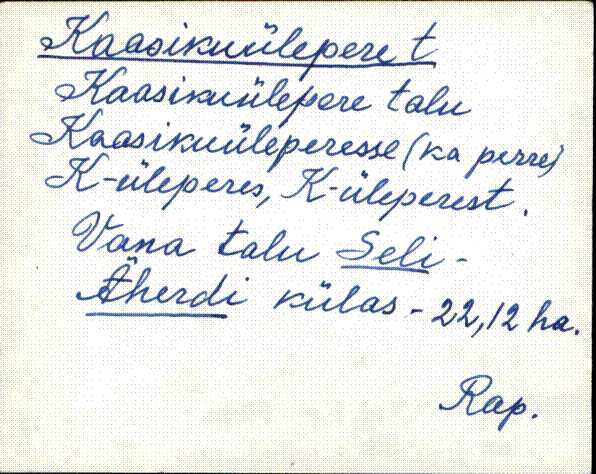 Kaasikuülepere t
Kaasikuülepere talu
Kaasikuüleperesse (ka perre)
K-üleperes, K-üleperest.
Vana talu Seli-
Äherdi külas - 22,12 ha.
Rap.